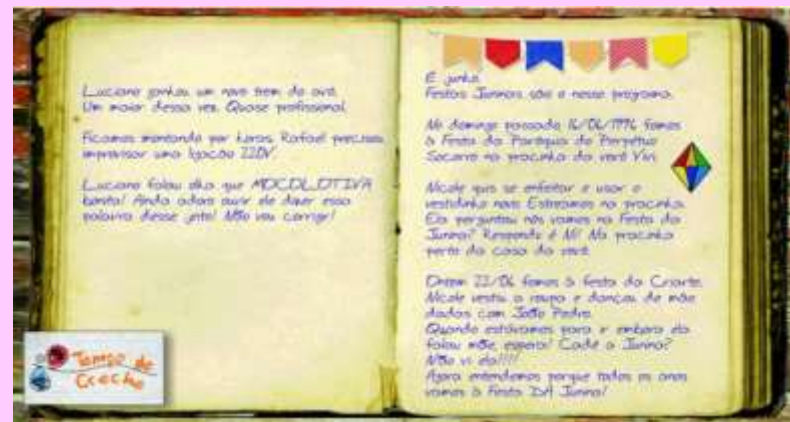 Luciano ganhou um novo trem do avô.
Um maior dessa vez. Quase profissional.
Ficamos montando por horas. Rafael precisou
improvisar uma ligação 220V.
Luciano falou olha que MOCOLOTIVA
bonita! Ainda adoro ouvir ele dizer essa
palavra desse jeito! Não vou corrigir!
Tempo de
Creche
É junho.
Festas Juninas são o nosso programa.
No domingo passado 16/06/1996 fomos
à Festa da Paróquia do Perpétuo
Socorro na pracinha da vovó Vivi.
Nicole quis se enfeitar e usar o
vestidinho novo. Estreamos na pracinha.
Ela perguntou nós vamos na Festa da
Junina? Respondo é Ni! Na pracinha
perto da casa da vovó.
Ontem 22/06 fomos à festa da Criarte.
Nicole vestiu a roupa e dançou de mãos
dadas com João Pedro.
Quando estávamos para ir embora ela
falou mãe, espera! Cadê a Junina?
Não vi ela!!!!!
Agora entendemos porque todos os anos
vamos à Festa DA Junina!